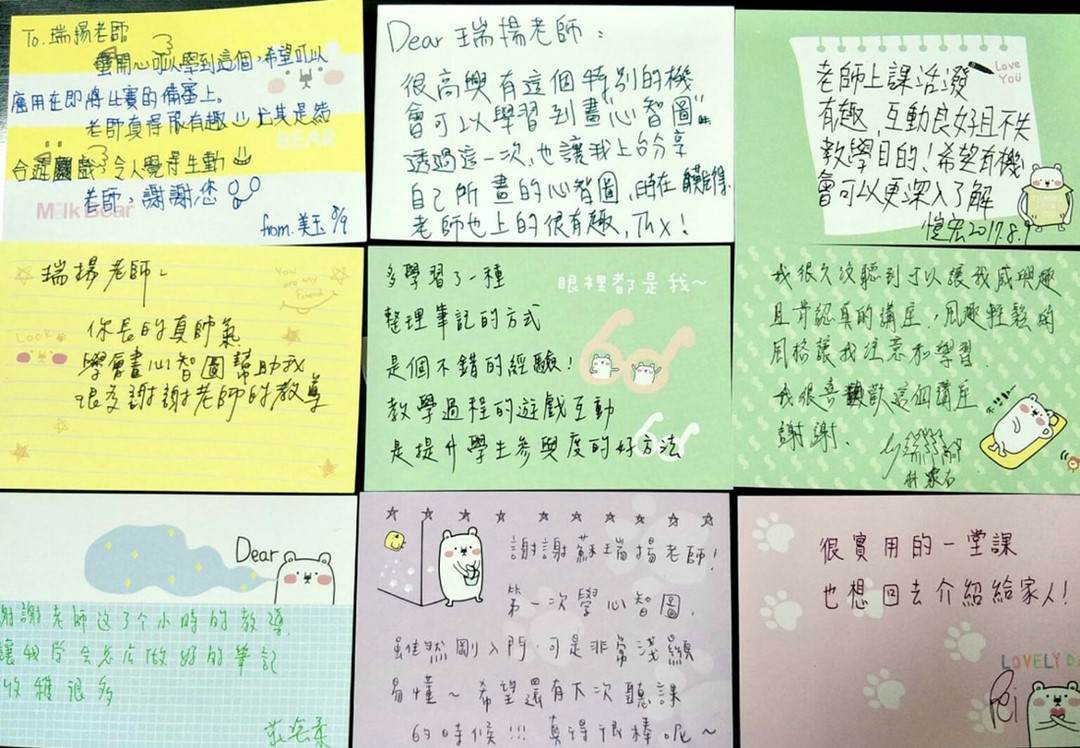 To. 瑞揚老師
蠻開心可以學到這個,希望可以
應用在即將比賽的備審上。
老師真得很有趣 尤其是結
合遊戲,令人覺得生動
老師,謝謝您
from. 美玉 8/9
BEAR
Milk Bear
Dear 瑞揚老師:
很高興有這個特別的機
會可以學習到畫"心智圖"
透過這一次,也讓我上台分享
自己所畫的心智圖,實在難得.
老師也上的很有趣,Thx!
Love
You
老師上課活潑
有趣,互動良好且不失
教學目的!希望有機
會可以更深入了解
2017.8.9
瑞揚老師:
你長的真帥氣
學會畫心智圖幫助我
很多謝謝老師的教導
You
are my
Friend
Look
多學習了一種
整理筆記的方式
是個不錯的經驗!
教學過程的遊戲互動
是提升學生參與度的好方法
眼裡都是我~
我很久沒聽到可以讓我感興趣
且肯認真的講座,風趣輕鬆的
風格讓我注意和學習.
我很喜歡這個講座
謝謝.
by
Dear
謝謝老師这3个小時的教導.
讓我学会怎么做好的筆記
收穫很多
謝謝蘇瑞揚老師!
第一次學心智圖.
雖然剛入門.可是非常淺顯
易懂~希望還有下次聽課
的時候!!!真得很棒呢~
很實用的一堂課
也想回去介紹給家人!
LOVELY D
Pei